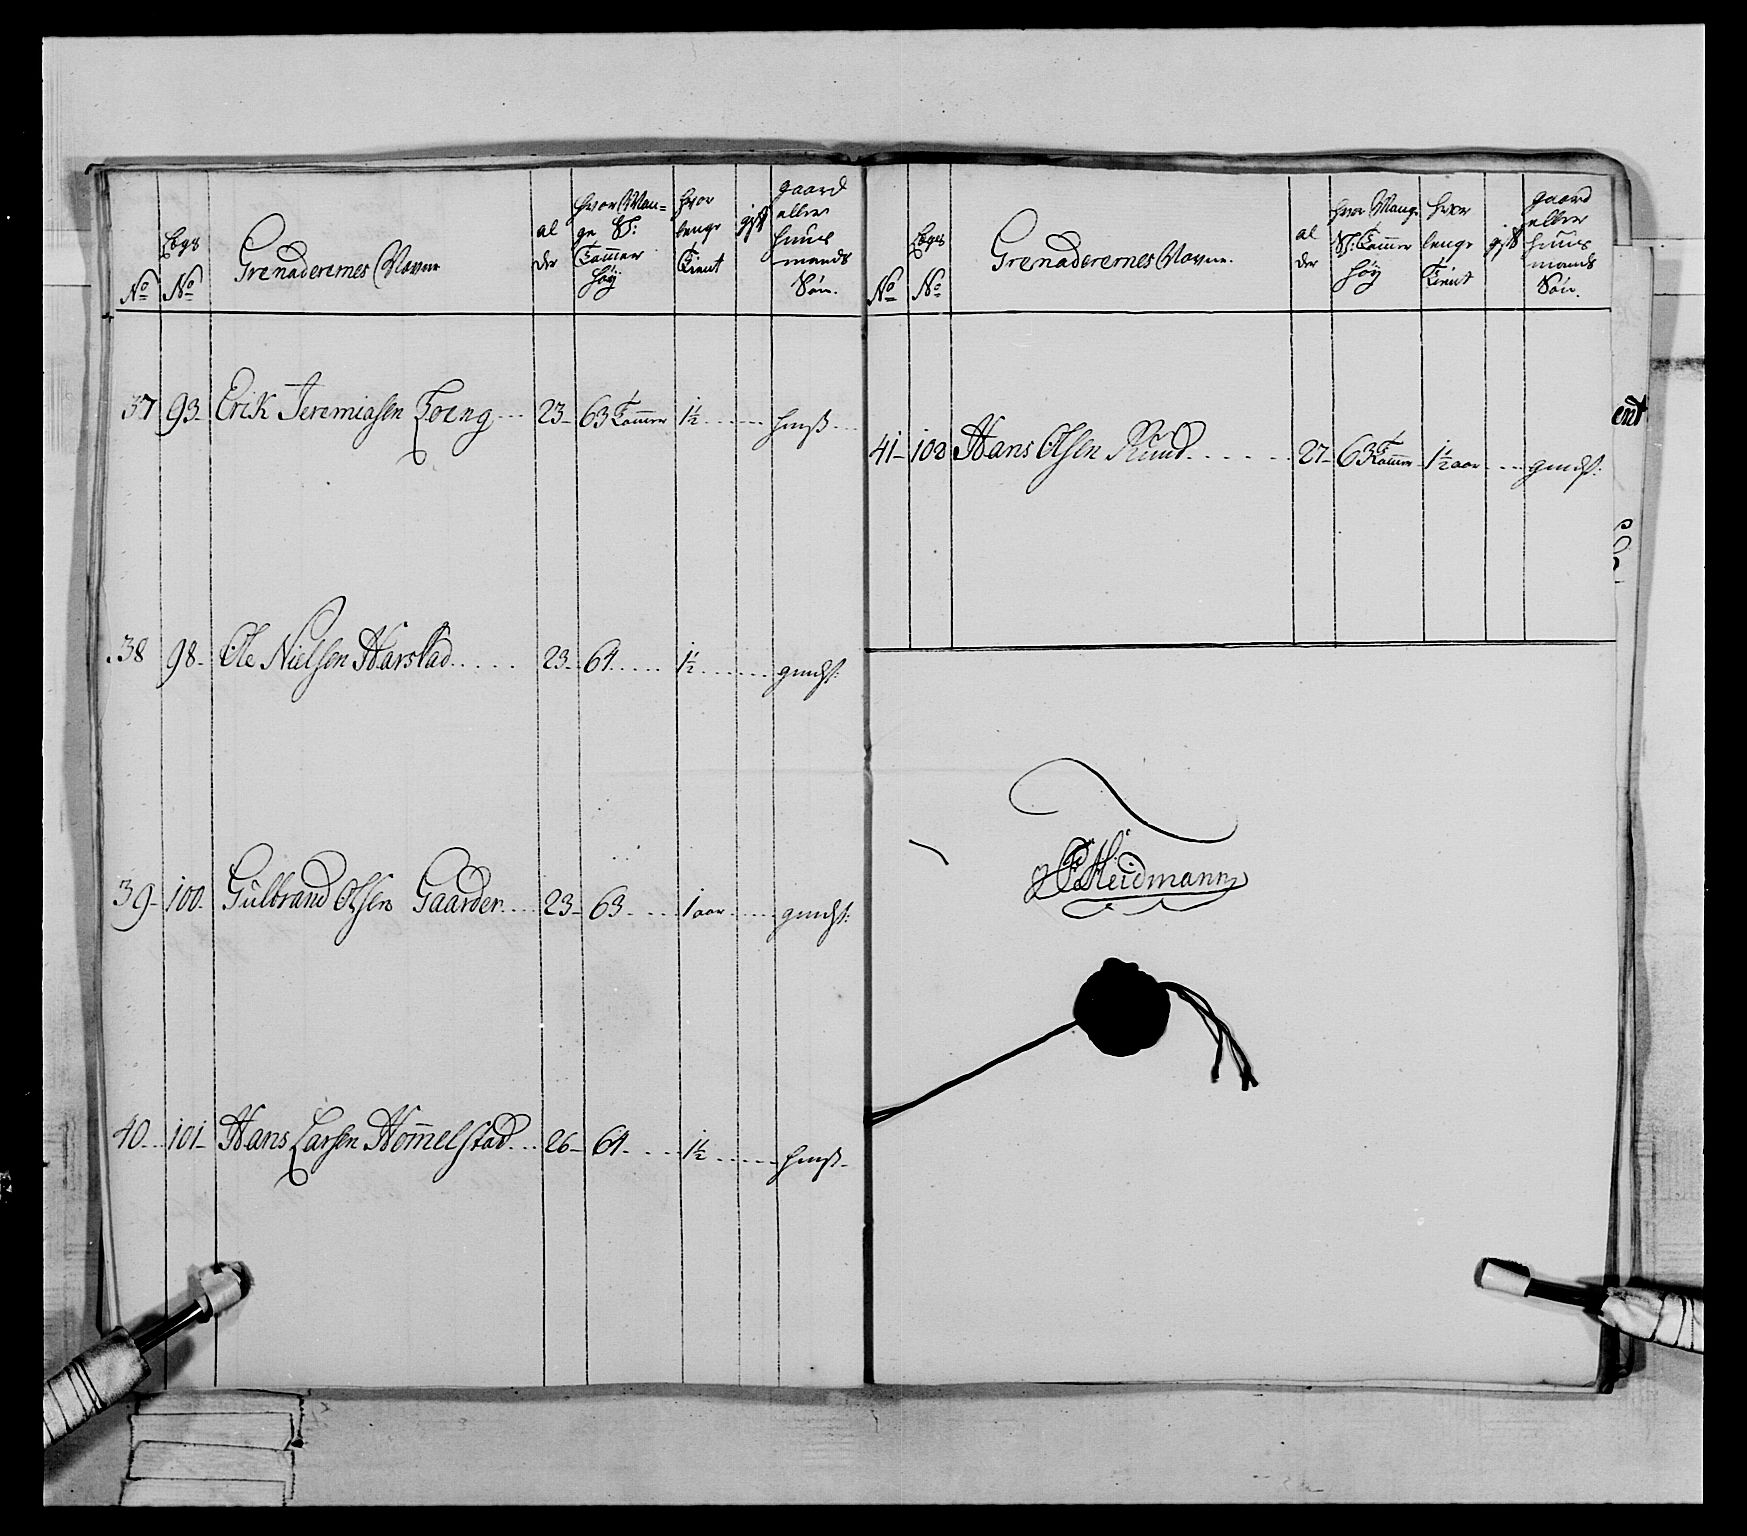 No
Cbgs No
Grenaderernes Navne
al der
hvor Man= ge S: Tommer høy
hvor lenge Tient
gift
gaard eller huus mands Søn.
37 93- Erik Jeremiasen Toeng... 23- 63 Tommer 1½ ...... huusß...
38 98- Ole Nielsen Harstad..... 23- 64..... 1½ ...... gmdß:
39- 100. Gulbrand Olsen Gaarder.... 23- 63.... 1 aar ..... gmdß:
40... 101- Hans Larsen Hommelstad... 26- 64.... 1½ ...... hmß-
No
Cbgs No
Grenaderernes Navne.
al der
hvor Mange S: Tommer høy
hvor lenge Tient
gift
gaard eller huus mands Søn.
41- 102 Hans Olsen Ruud...... 27- 63 Tommer 1½ aar .... gmdß:
Heidmann
ent